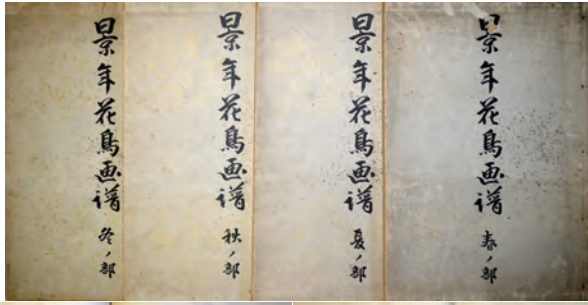 景年花鳥画谱 春ノ部
景年花鳥画谱 夏ノ部
景年花鳥画谱 秋ノ部
景年花鳥画谱 冬ノ部